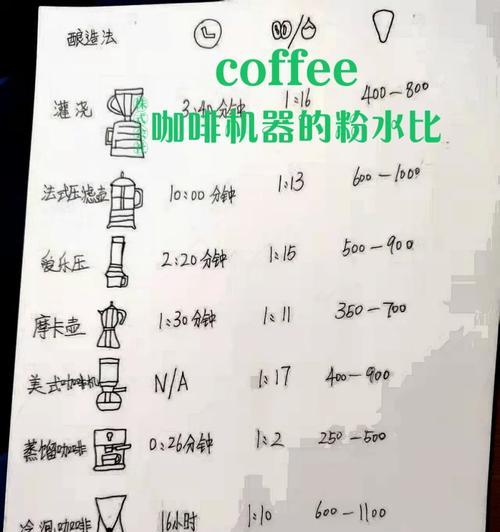 酿造法
coffee
灌浇 3:40分钟 1:16 400-800
咖啡机器的粉水比
法式压滤壶 10:00分钟 1:13 600-1000
爱乐压 2:20分钟 1:15 500-900
摩卡壶 1:30分钟 1:11 350-700
美式咖啡机 N/A 1:17 400-900
蒸馏咖啡 0:26分钟 1:2 250-500
冷泡咖啡 16小时 1:10 600-1100